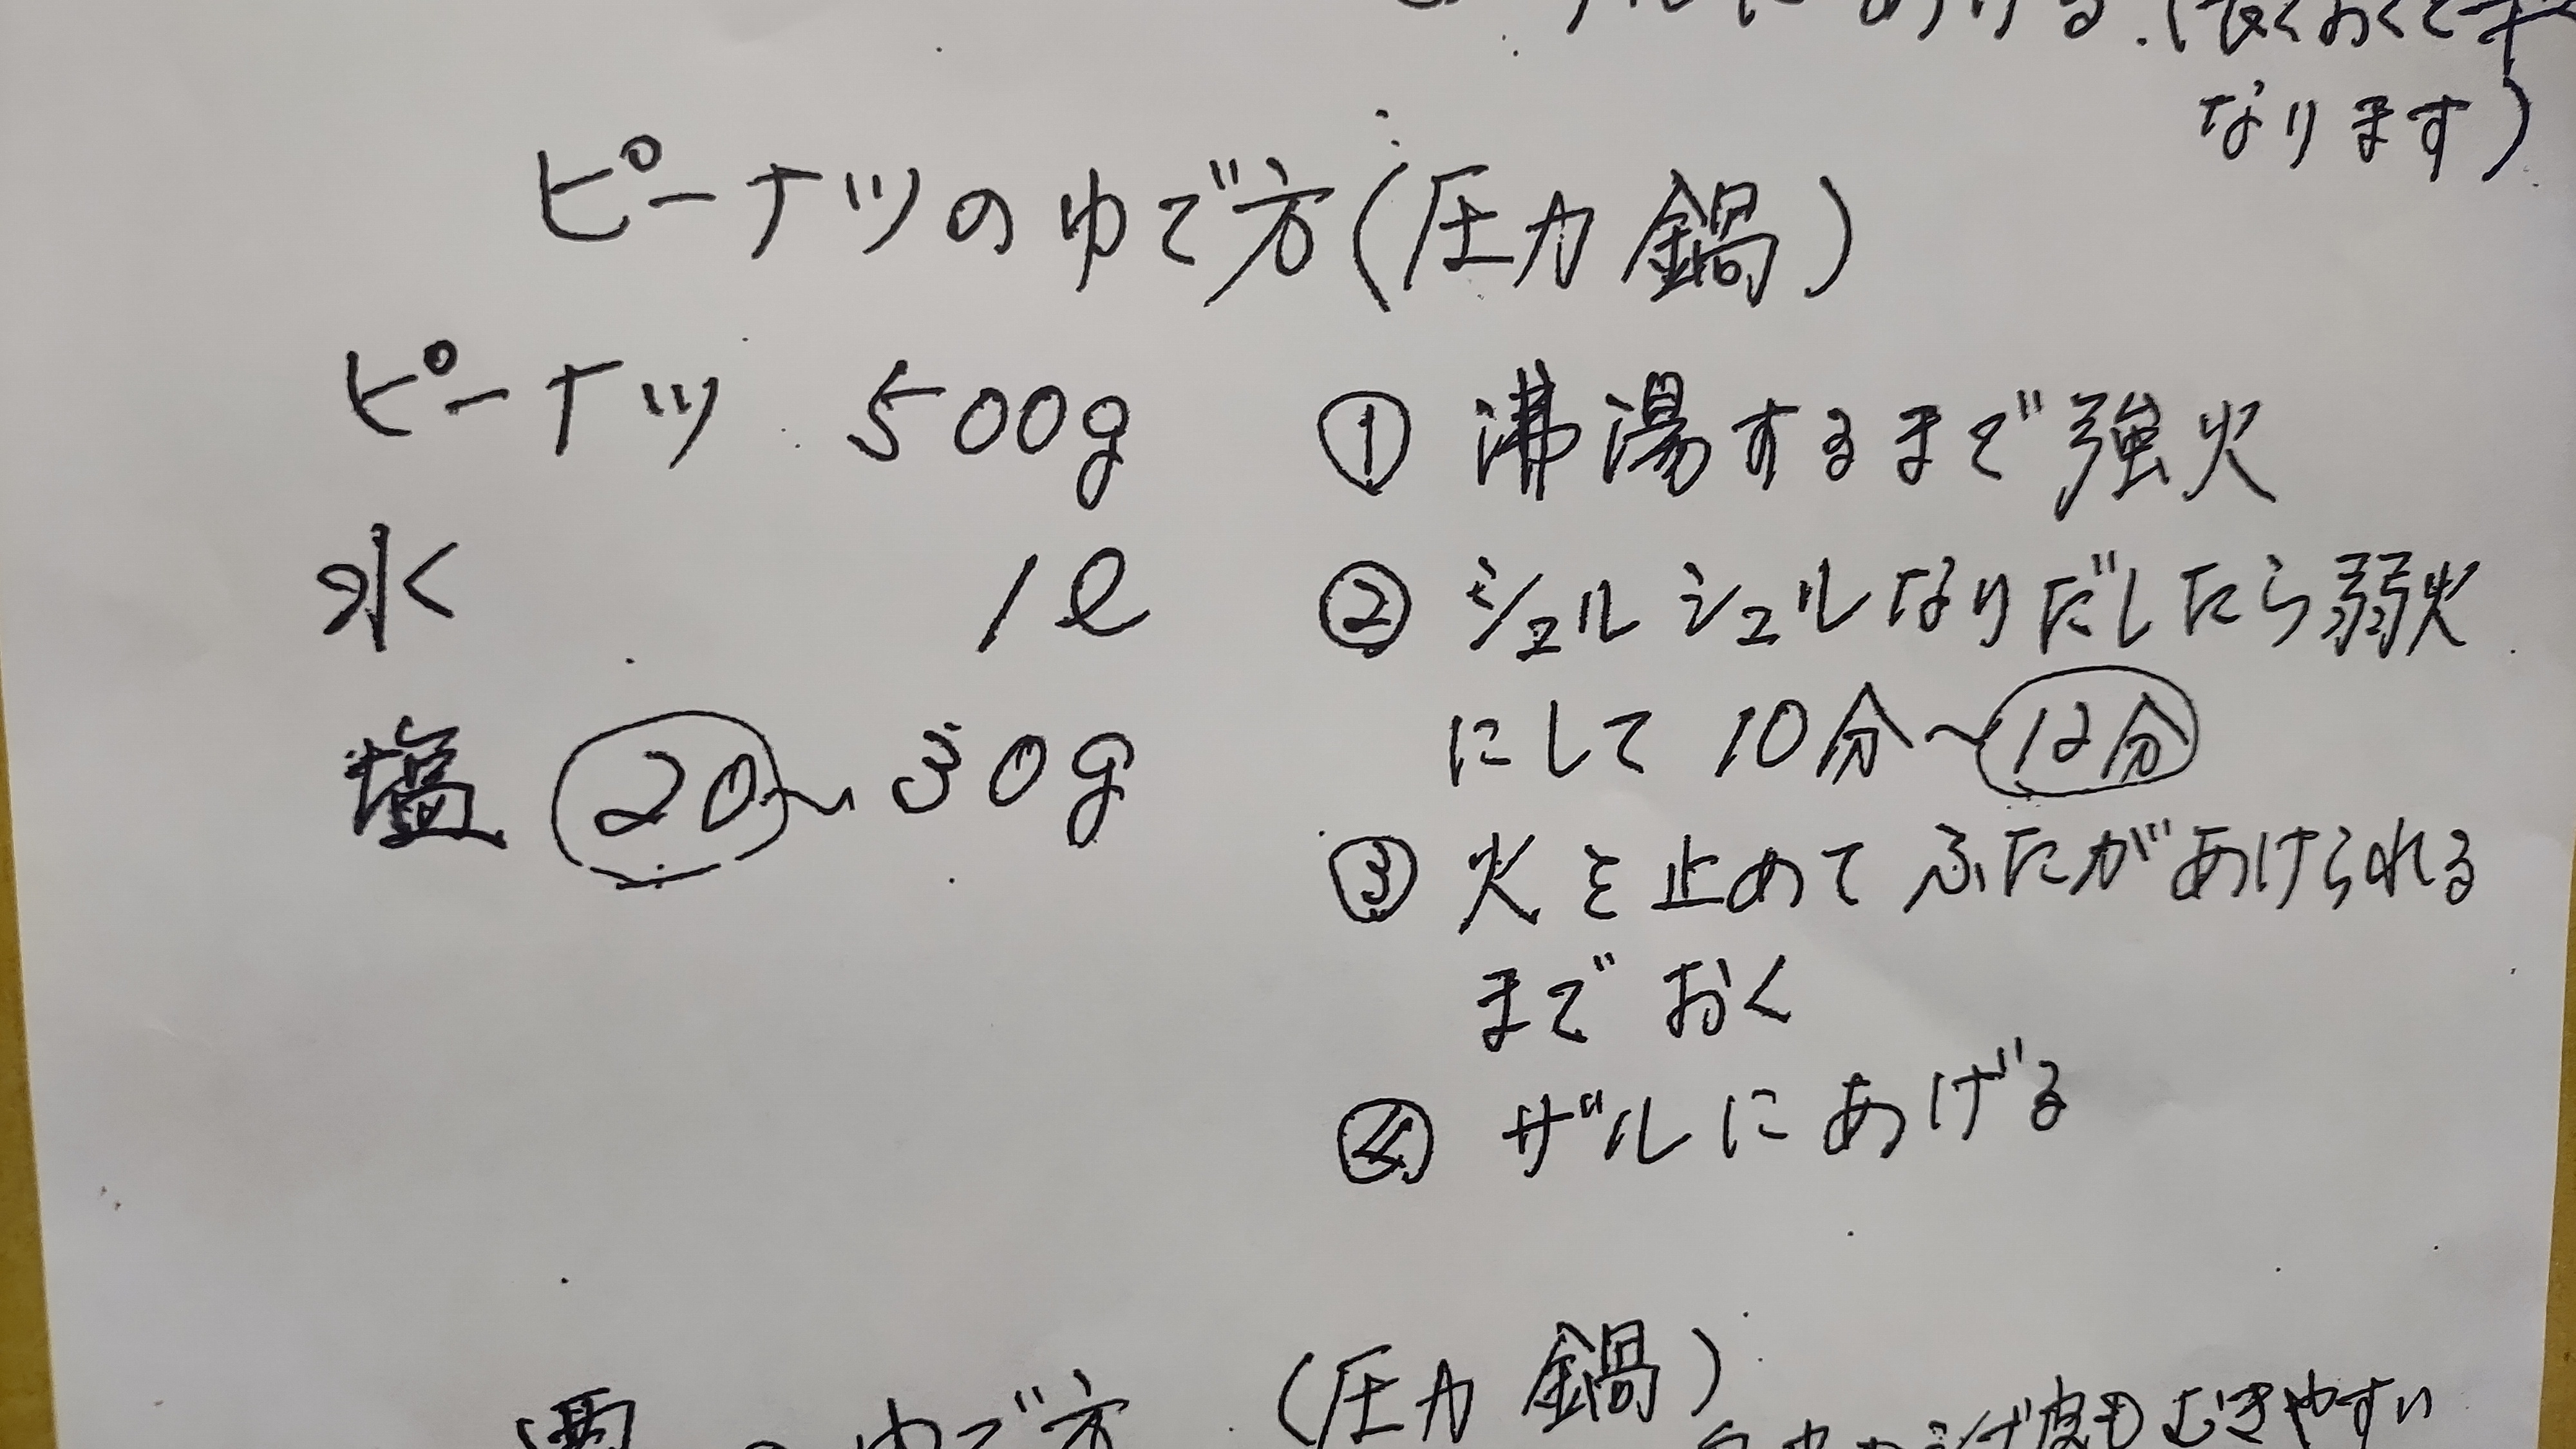 ザルにあげる.(長くおくと
なります)
ピーナツのゆで方(圧力鍋)
ピーナツ 500g
水 1ℓ
塩 20〜30g
① 沸湯するまで強火
② シュルシュルなりだしたら弱火
にして 10分〜12分
③ 火を止めてふたがあけられる
まで おく
④ ザルにあげる
栗のゆで方 (圧力鍋)
むきやすい